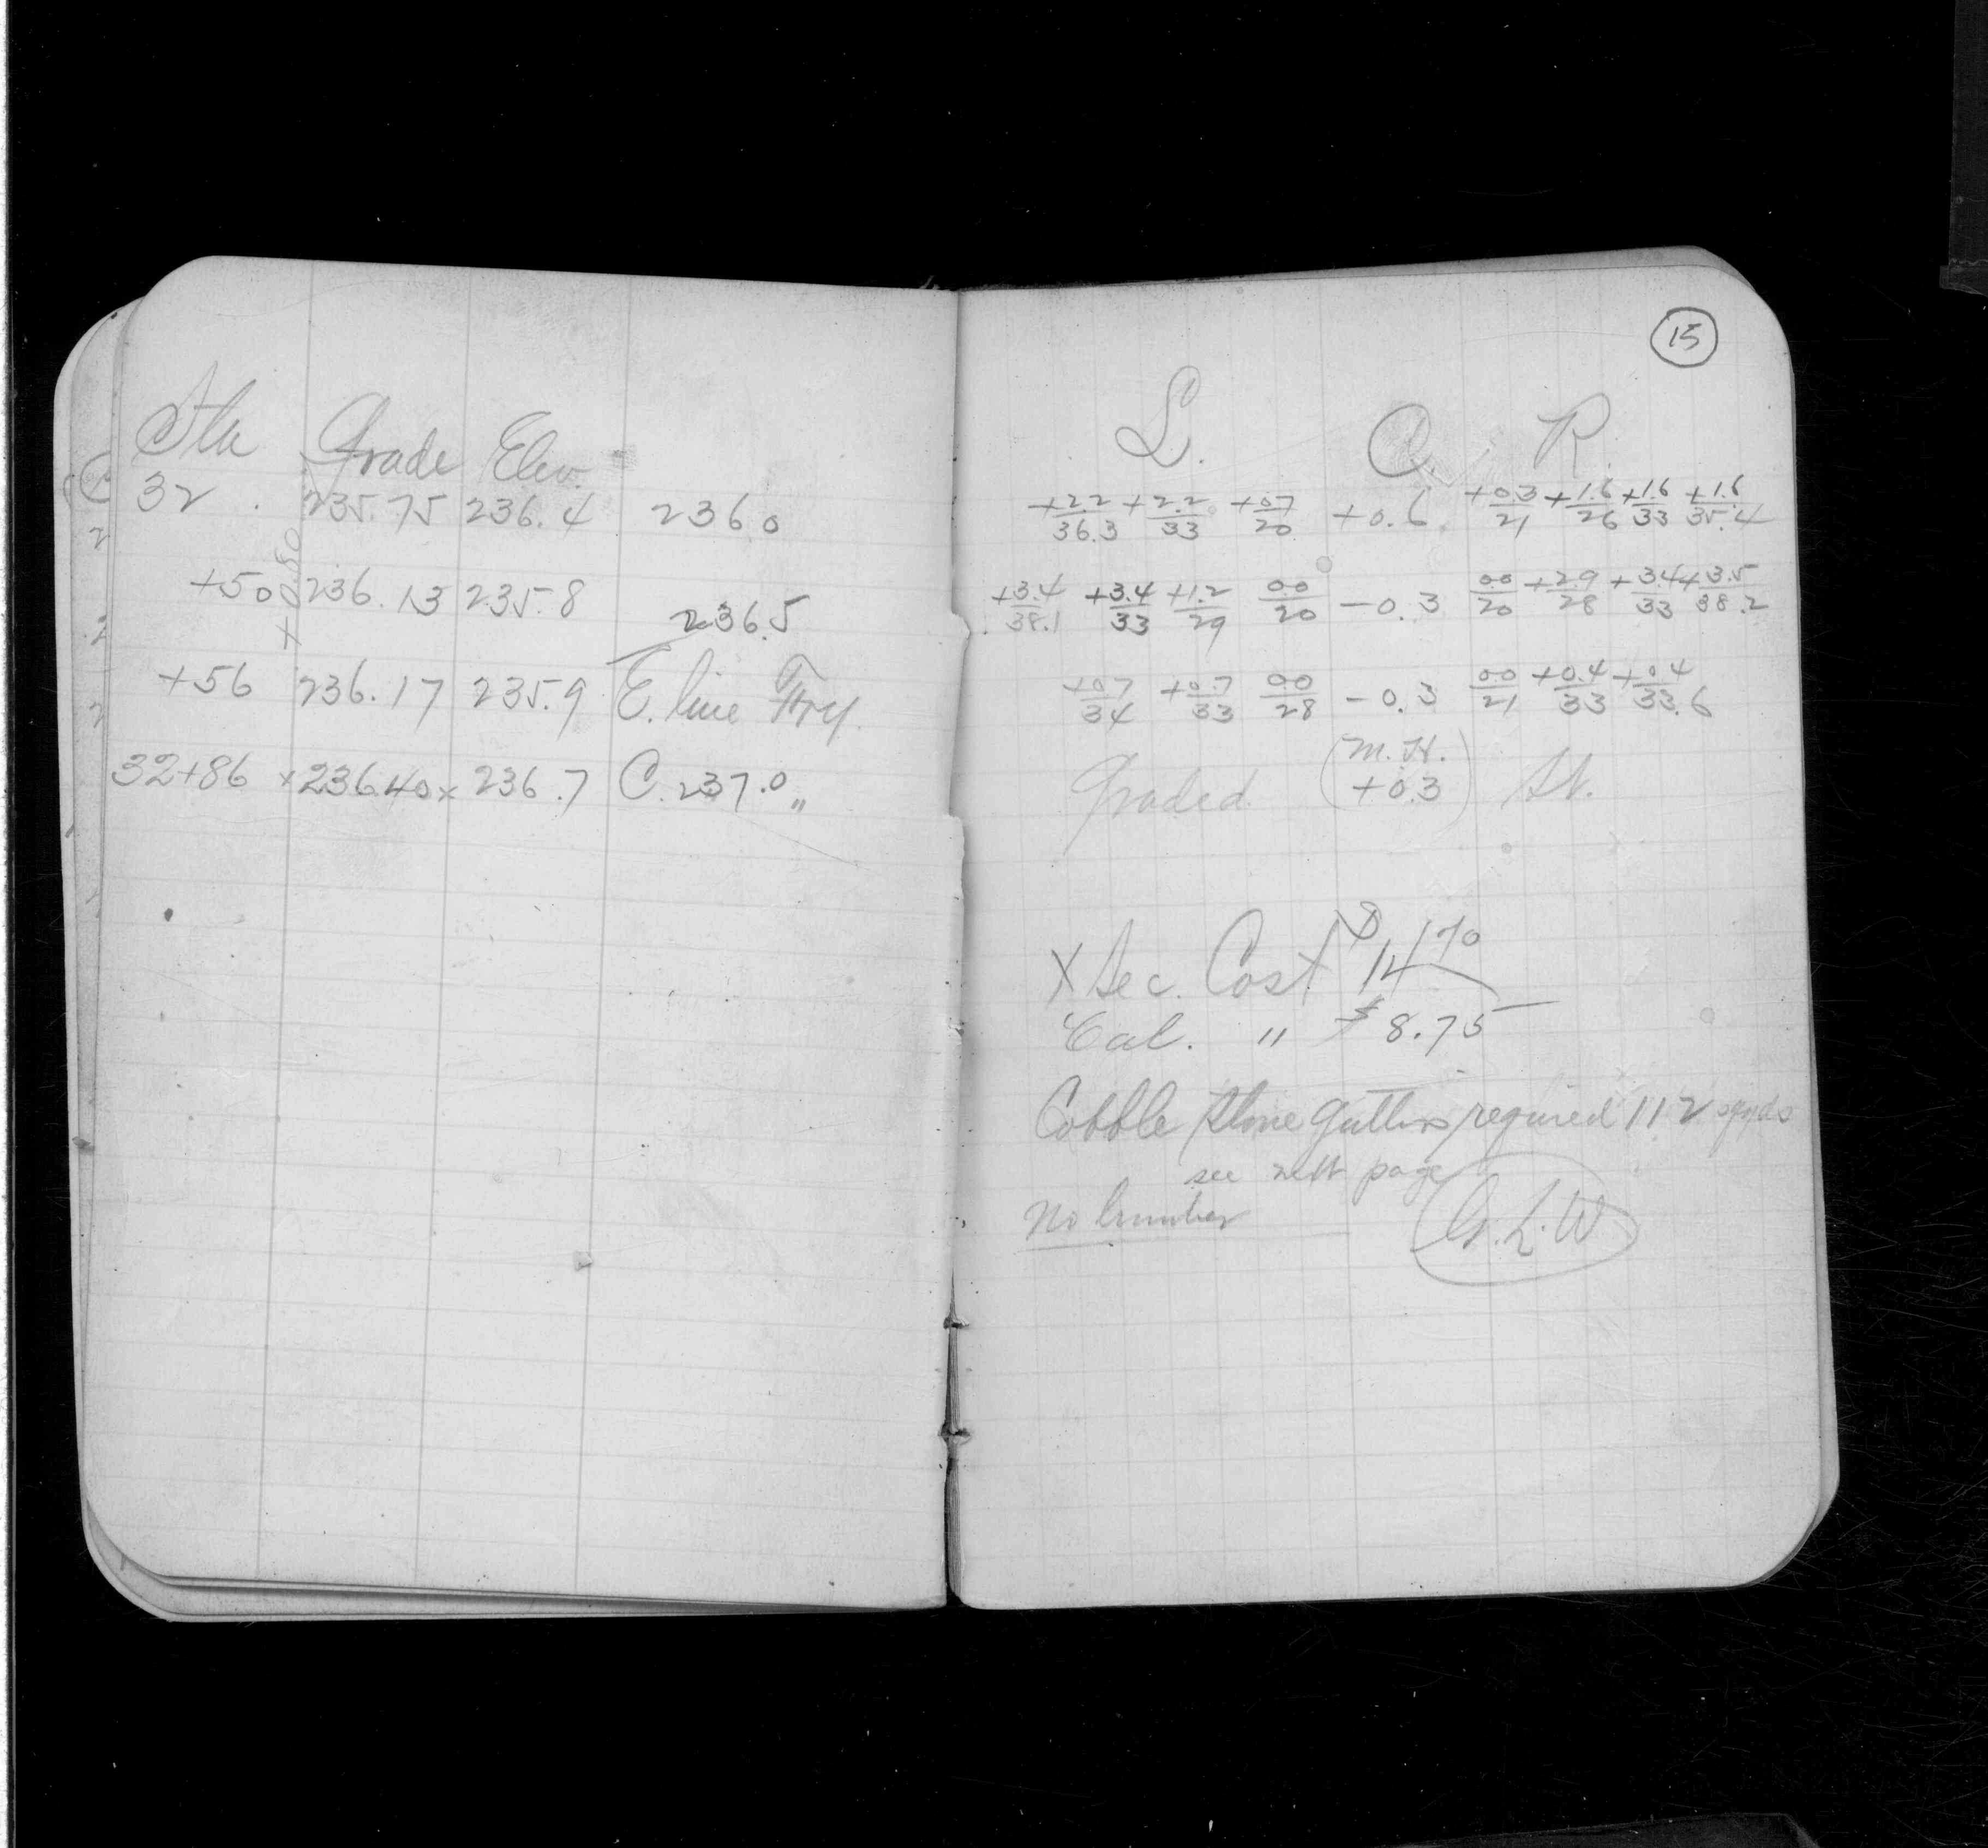 Sta Grade Elev.
32 235.75 236.4 236.0
+0.80
+50 236.13 235.8 236.5
+56 236.17 235.9 E. line Fry.
32+86 x 236.40 x 236.7 C. 237.0 "
15
L. C. R.
+2.2/36.3 +2.2/33 +0.7/20 +0.6 +0.3/21 +1.6/26 +1.6/33 +1.6/35.4
+3.4/38.1 +3.4/33 +1.2/29 0.0/20 -0.3 0.0/20 +2.9/28 +3.4/33 +3.5/38.2
+0.7/34 +0.7/33 0.0/28 -0.3 0.0/21 +0.4/33 +0.4/33.6
(M.H.
Graded +0.3) St.
X Sec. Cost $14 70
Cal. " $8.75
Cobble Stone Gutters required 112 sqyds
see next page
No lumber G.L.W